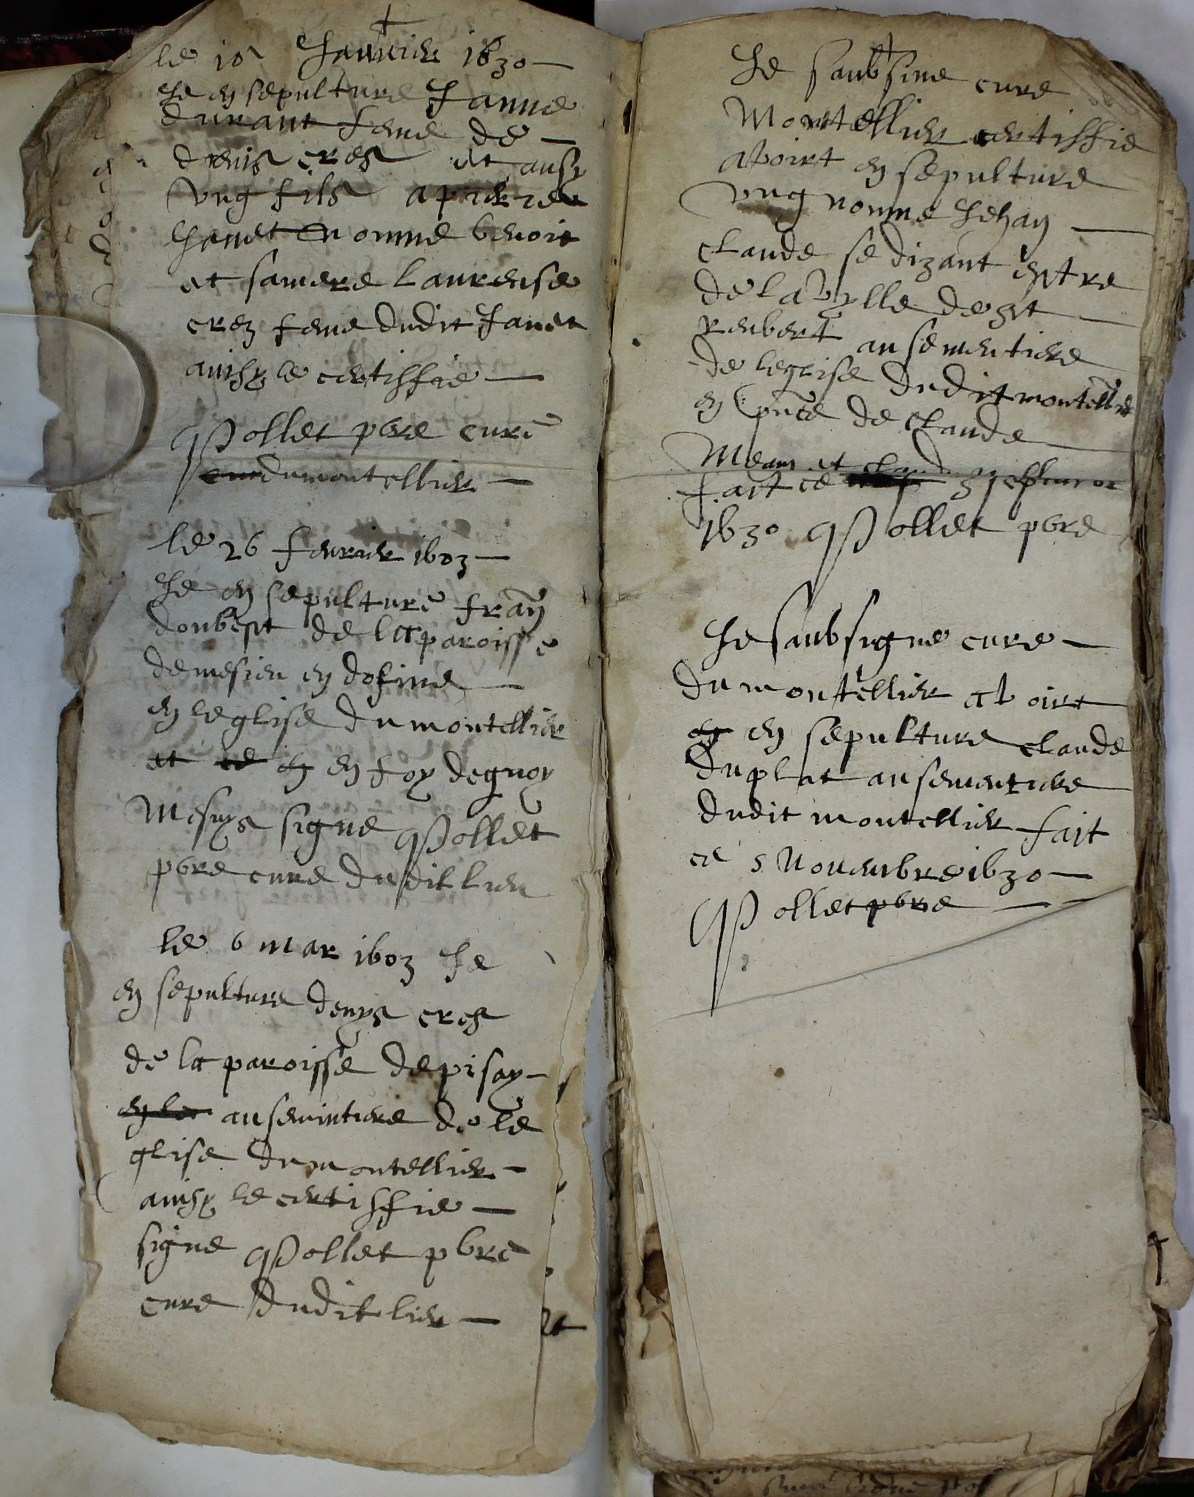 le 10 Janvier 1630
Je ey sepulture Janne
durant feme de
denis cres et ausy
ung fils
Janet nomme benoit
et samere laurense
crez feme dudit Janet
ainsy le certiffie
Pollet pbre curé
dumontellier
le 26 fevrier 1603
Je ey sepulturé
de la paroisse
en dofiné
ey leglise du montellier
et ey foy dequoy
signé Pollet
pbre curé dudit lieu
le 6 mar 1603 Je
ey sepulture denys cres
de la paroisse de pisay
ey la ausemintiere de le
glise du montellier
ainsy le certiffie
signe Pollet pbre
cure dudit lieu
Je saubsine cure
Montellier certiffie
avoirt ey sepulture
ung nomme Jehan
claude se dizant
de la vylle de
rembert au sementiere
de leglise dudit montellier
ey de Claude
fait ce
1630 Pollet pbre
Je saubsigne cure
du montellier avoirt
ey sepulture claude
duplat ausementiere
dudit montellier fait
ce 5 Novembre 1630
Pollet pbre